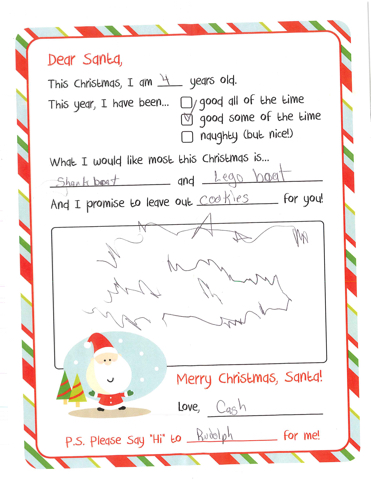 Dear Santa,
This Christmas, I am 4 years old.
This year, I have been... good all of the time
good some of the time
naughty (but nice!)
What I would like most this Christmas is...
Shark boat and Lego boat
And I promise to leave out cookies for you!
Merry Christmas, Santa!
Love, Cash
P.S. Please Say "Hi" to Rudolph for me!